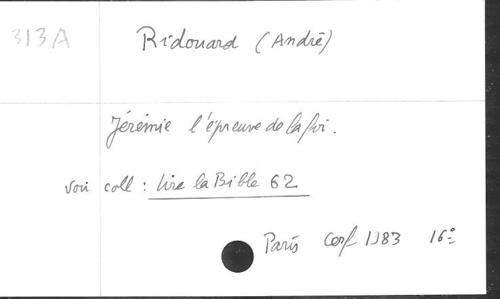 313A Ridouard (André)
Jérémie l'épreuve de la foi.
voir coll : Lire la Bible 62
Paris Cerf 1983 16°